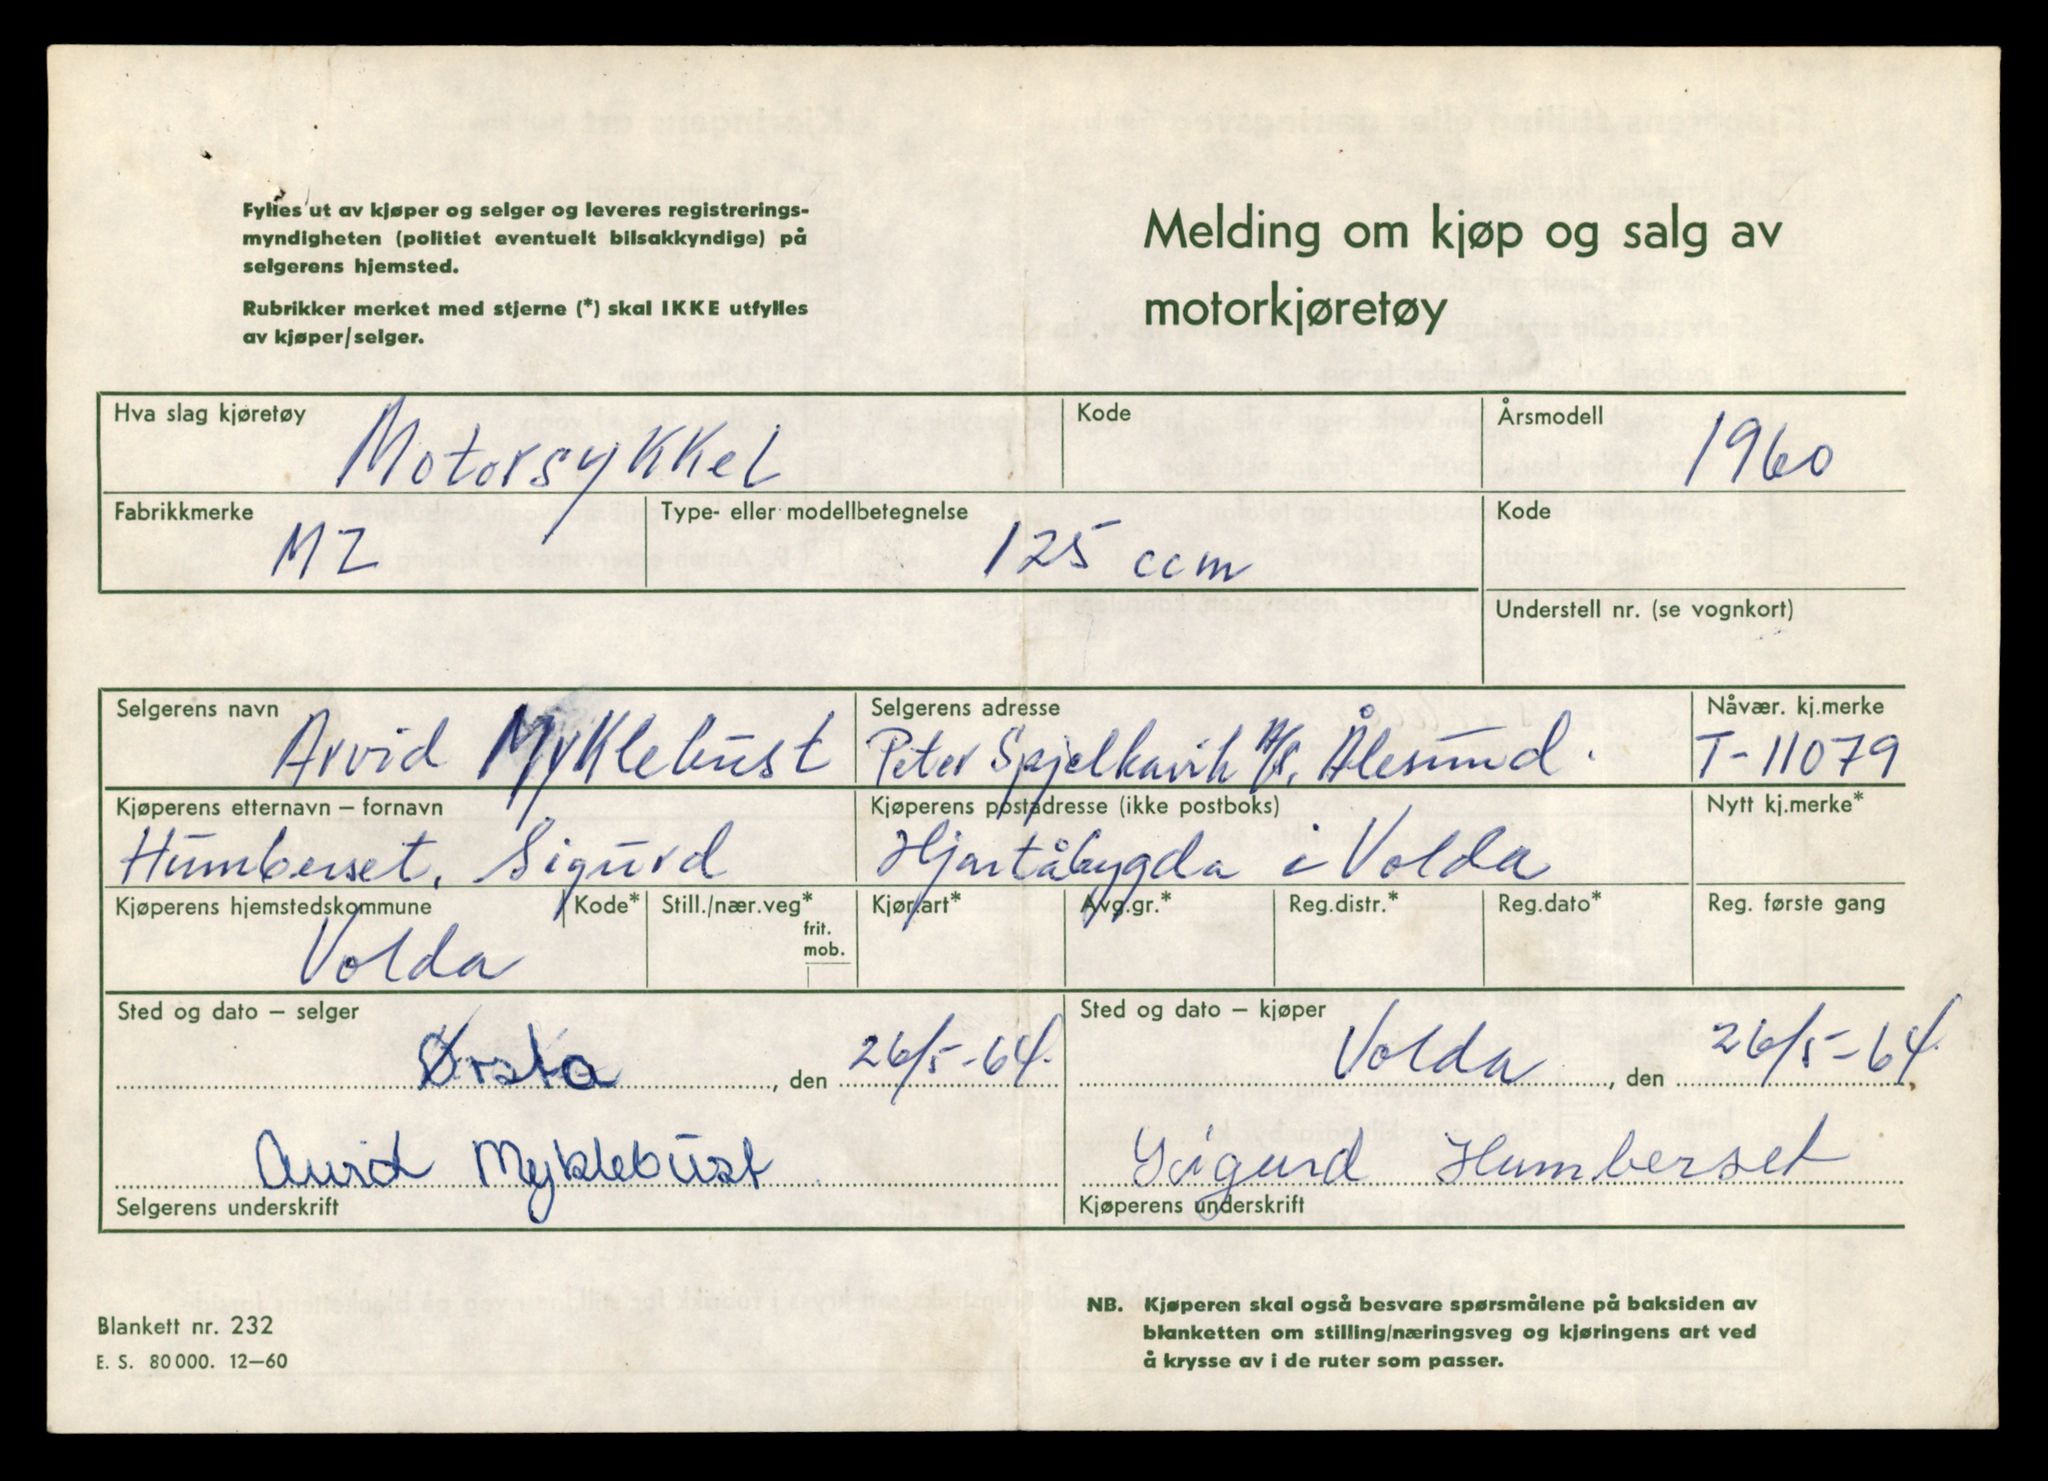 Fylles ut av kjøper og selger og leveres registrerings-
myndigheten (politiet eventuelt bilsakkyndige) på
selgerens hjemsted.
Rubrikker merket med stjerne (*) skal IKKE utfylles
av kjøper/selger.
Melding om kjøp og salg av
motorkjøretøy
Hva slag kjøretøy Kode Årsmodell
Motorsykkel 1960
Fabrikkmerke Type- eller modellbetegnelse Kode
MZ 125 ccm
Understell nr. (se vognkort)
Selgerens navn Selgerens adresse Nåvær. kj.merke
Arvid Myklebust Peter Spjelkavik A/S, Ålesund. T-11079
Kjøperens etternavn – fornavn Kjøperens postadresse (ikke postboks) Nytt kj.merke*
Humberset, Sigurd Hjartåbygda i Volda
Kjøperens hjemstedskommune Kode* Still./nær.veg* Kjør.art* Avg.gr.* Reg.distr.* Reg.dato* Reg. første gang
frit.
mob.
Volda
Sted og dato – selger Sted og dato – kjøper
Ørsta, den 26/5-64. Volda, den 26/5-64.
Arvid Myklebust Sigurd Humberset
Selgerens underskrift Kjøperens underskrift
Blankett nr. 232
E. S. 80 000. 12—60
NB. Kjøperen skal også besvare spørsmålene på baksiden av
blanketten om stilling/næringsveg og kjøringens art ved
å krysse av i de ruter som passer.